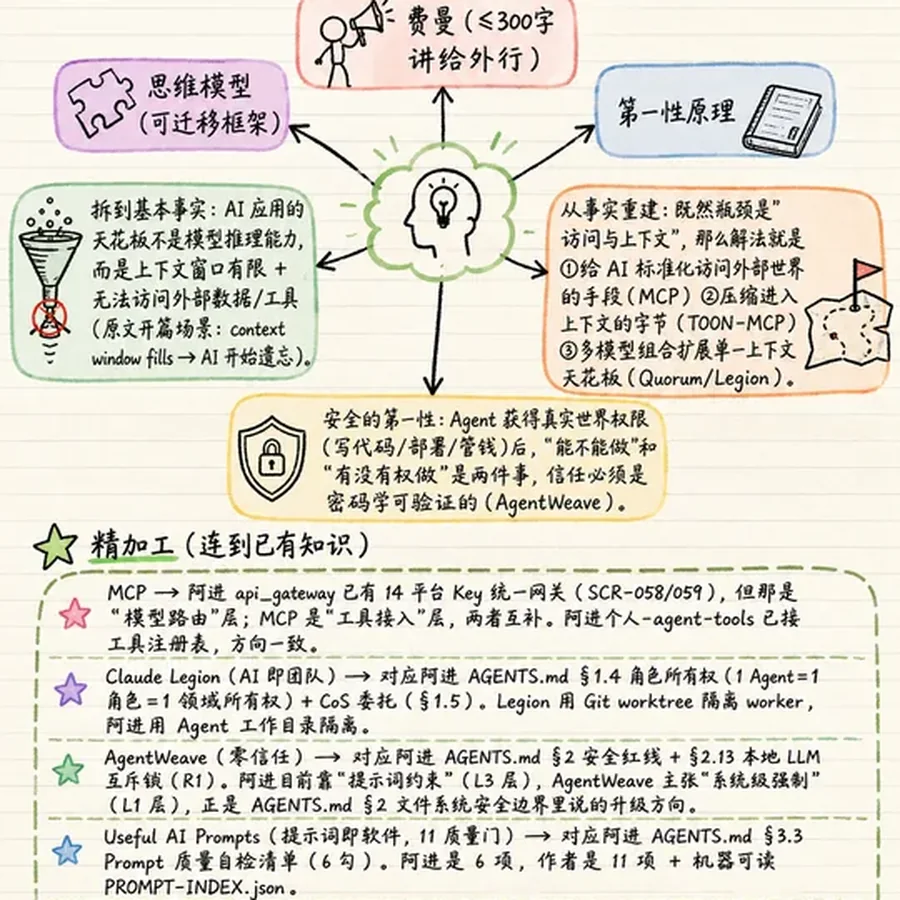 费曼（≤300字
讲给外行）
思维模型
（可迁移框架）
第一性原理
拆到基本事实：AI 应用的
天花板不是模型推理能力，
而是上下文窗口有限 +
无法访问外部数据/工具
（原文开篇场景：context
window fills → AI 开始遗忘）。
从事实重建：既然瓶颈是”
访问与上下文”，那么解法就是
①给 AI 标准化访问外部世界
的手段（MCP）②压缩进入
上下文的字节（TOON-MCP）
③多模型组合扩展单一上下文
天花板（Quorum/Legion）。
安全的第一性：Agent 获得真实世界权限
（写代码/部署/管钱）后，“能不能做”和
“有没有权做”是两件事，信任必须是
密码学可验证的（AgentWeave）。
精加工（连到已有知识）
MCP → 阿进 api_gateway 已有 14 平台 Key 统一网关（SCR-058/059），但那是
“模型路由”层；MCP 是“工具接入”层，两者互补。阿进个人-agent-tools 已接
工具注册表，方向一致。
Claude Legion（AI 即团队）→ 对应阿进 AGENTS.md §1.4 角色所有权（1 Agent=1
角色=1 领域所有权）+ CoS 委托（§1.5）。Legion 用 Git worktree 隔离 worker，
阿进用 Agent 工作目录隔离。
AgentWeave（零信任）→ 对应阿进 AGENTS.md §2 安全红线 + §2.13 本地 LLM
互斥锁（R1）。阿进目前靠“提示词约束”（L3 层），AgentWeave 主张“系统级强制”
（L1 层），正是 AGENTS.md §2 文件系统安全边界里说的升级方向。
Useful AI Prompts（提示词即软件，11 质量门）→ 对应阿进 AGENTS.md §3.3
Prompt 质量自检清单（6 勾）。阿进是 6 项，作者是 11 项 + 机器可读
PROMPT-INDEX.json。